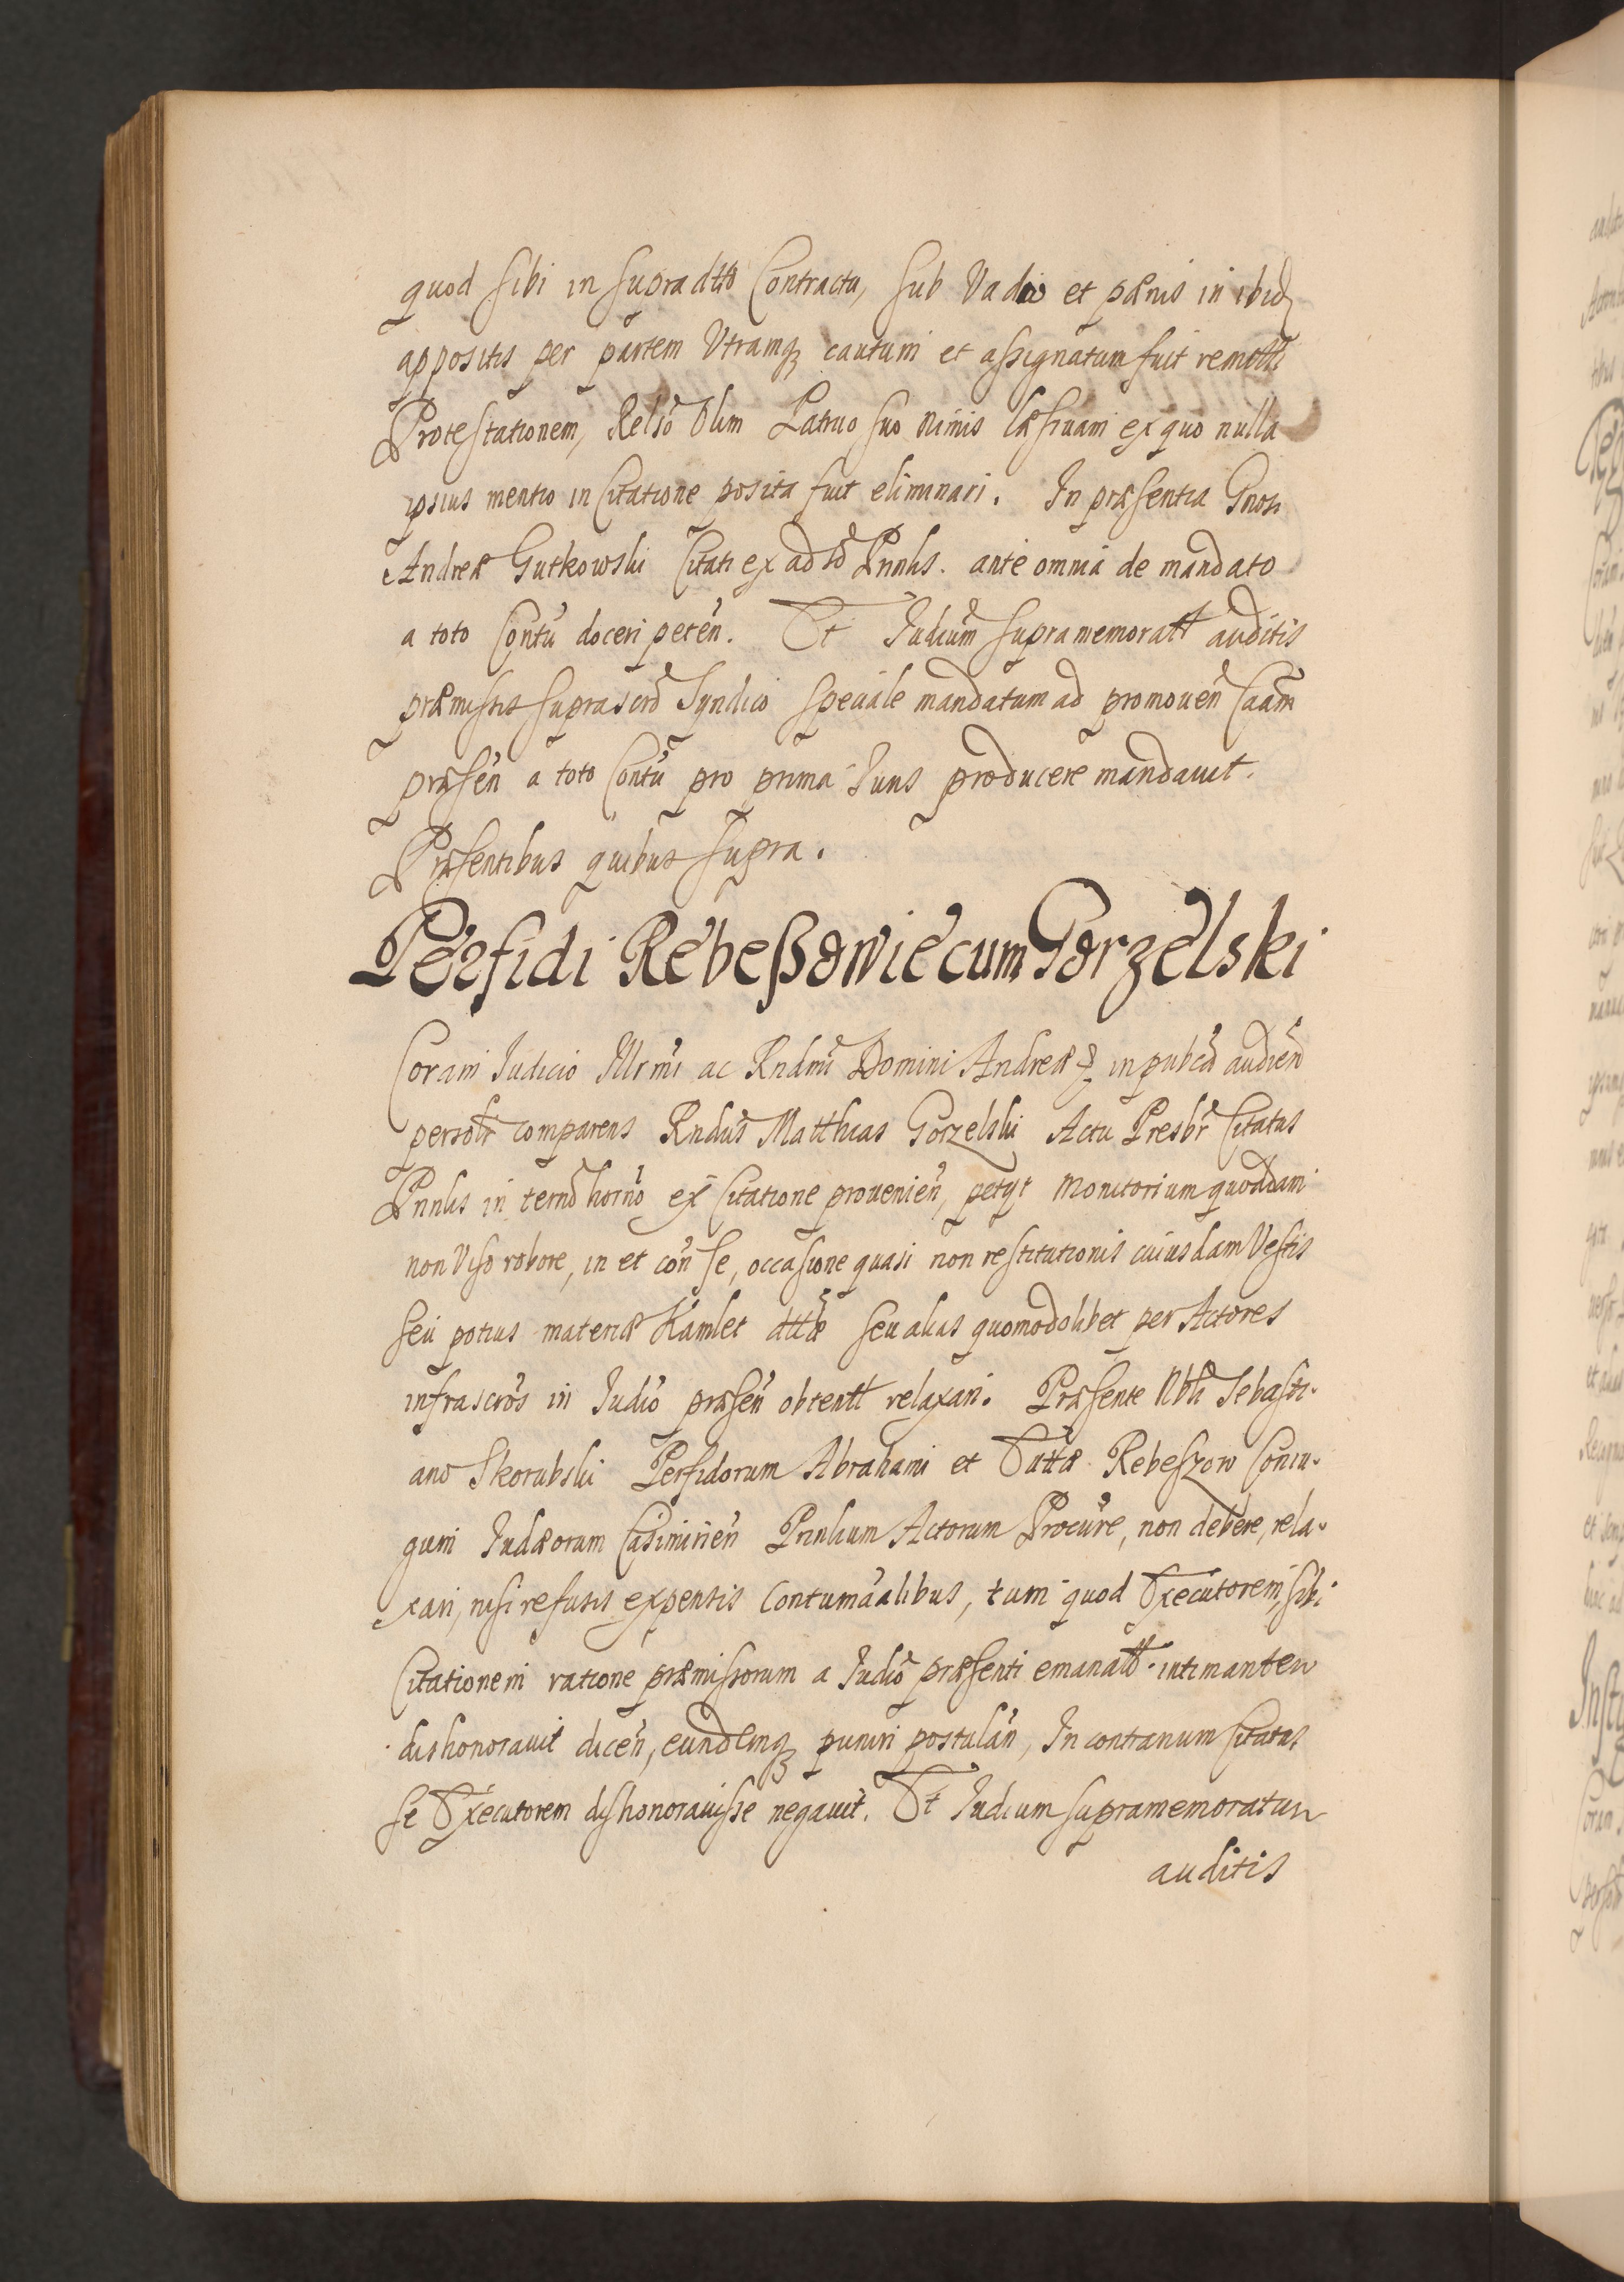 quod sibi in supradtto Contractu, sub Vadio et pænis in ibid
appositis per partem Vtramq cautum et assignatum fuit remotti
Protestationem, Relso Olim Patruo suo nimis læsiuam ex quo nulla
ipsius mentio in Citatione posita fuit eliminari. In præsentia Gnosi
Andreæ Gutkowski Citati ex adto Pnnlis. ante omnia de mandato
a toto Contu doceri peten. Et Judium supramemoratt auditis
præmissis suprascrd Syndico speciale mandatum ad promouen Caam
præsen a toto Contu pro prima Juris producere mandauit.
Præsentibus quibus supra.
Perfidi Rebeßowie cum Gorzelski
Coram Judicio Illrmi ac Rndmi Domini Andreæ in pubca audien
persoltr comparens Rndus Matthias Gorzelski Actu Presbr Citatus
Pnnlis in termo horno ex Citatione prouenien, petyt monitorium quoddam
non Viso robore, in et con se, occasione quasi non restitutionis cuiusdam Vestis
seu potius materiæ Kamlet dttæ seu alias quomodolibet per Actores
infrascros in Judio præsen obtentt relaxari. Præsente Nbli Sebasti-
ano Skorubski Perfidorum Abrahami et Tuttæ Rebeszow Coniu-
gum Judæorum Casimirien Pnnlium Actorum Procure, non debere, rela-
xari, nisi refusis expensis Contumacialibus, tum quod Executorem, sibi
Citationem ratione præmissorum a Judio præsenti emanatt intimantem
dishonorauit dicen, eundemq puniri postulan, In contrarium Citatus
se Executorem dishonorauisse negauit. Et Judicium supramemoratum
auditis